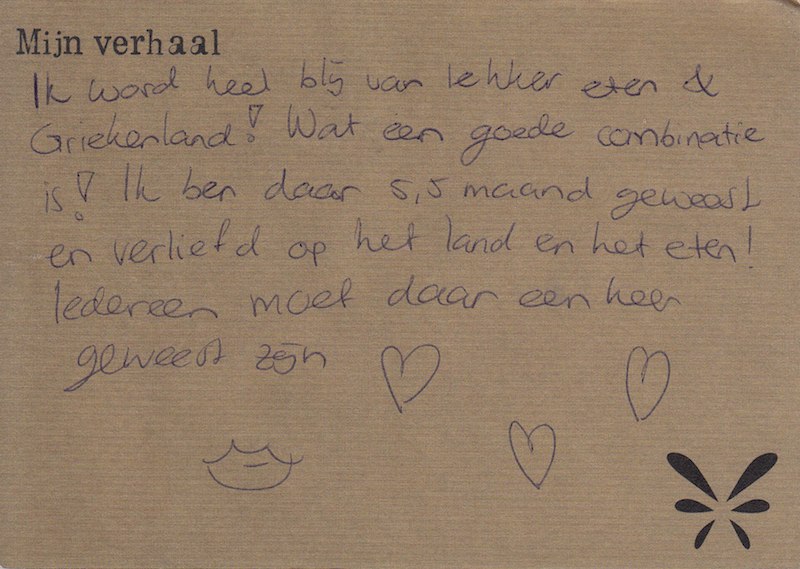 Mijn verhaal
Ik word heel blij van lekker eten &
Griekenland! Wat een goede combinatie
is! Ik ben daar 5,5 maand geweest
en verliefd op het land en het eten!
Iedereen moet daar een keer
geweest zijn